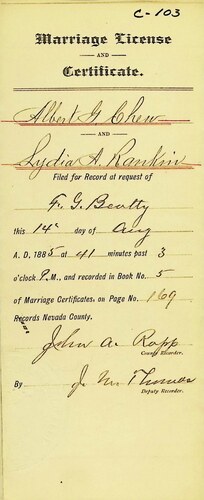 C-103
Marriage License
AND
Certificate.
Albert G. Chew
AND
Lydia A. Rankin
Filed for Record at request of
F. G. Beatty
this 14th day of Aug
A. D. 1885 at 41 minutes past 3
o'clock P.M., and recorded in Book No. 5
of Marriage Certificates, on Page No. 169
Records Nevada County.
John A. Rapp
County Recorder.
By J. M. Thomas
Deputy Recorder.